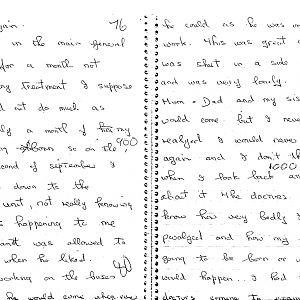 gain. 76
in the main general
for a month not
ny treatment I suppose
d not do much as
ly a month of my
so on the 900
cond of september I
down to the
unit, not really knowing
s happening to me
was allowed to
when he liked.
working on the buses
he would come whenever
he could as he was on
work. This was great a
was shut in a side
and was very lonely.
Mum + Dad and my sis
would come but I neve
realized I would never
again and I don't th
1000
when I look back an
about it the doctors
know how very badly I
paralyzed and how my
going to be born or w
would happen. I had
doctors coming to